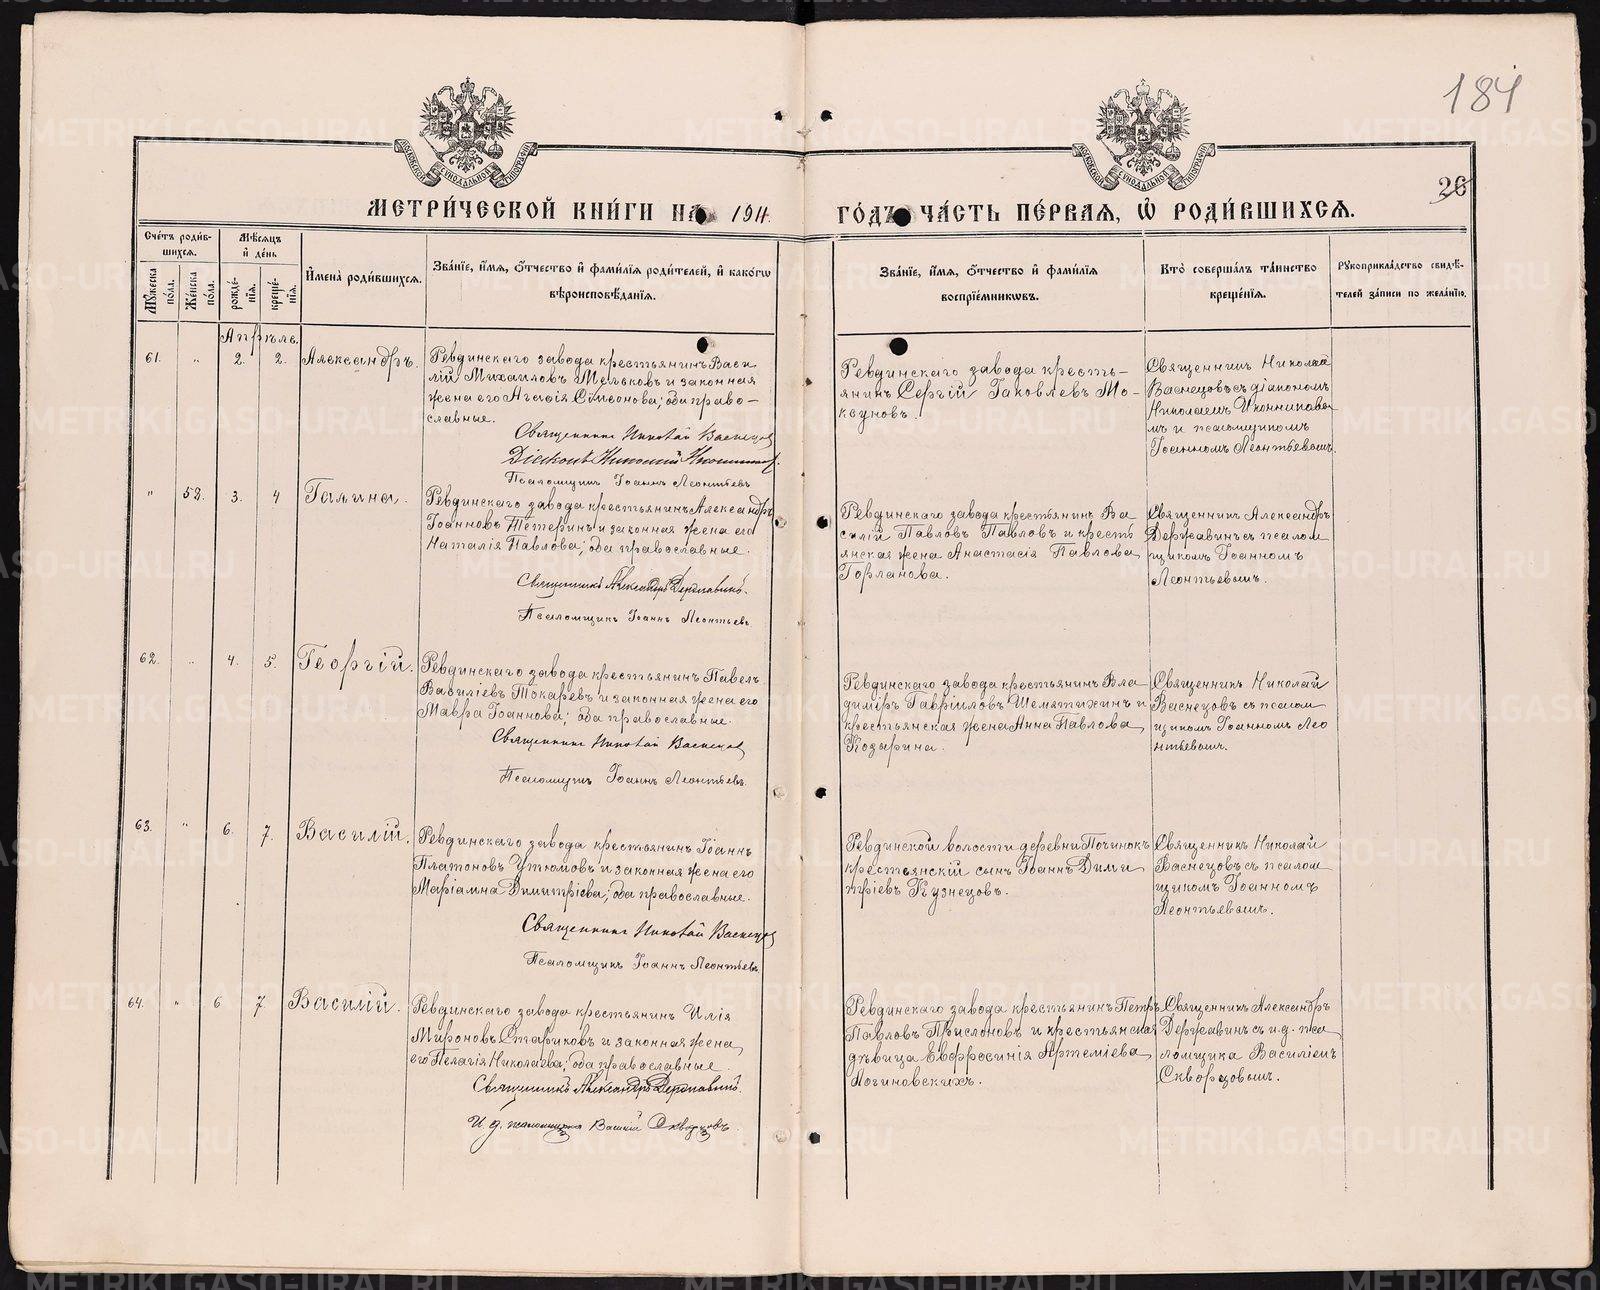 184
26
МЕТРИ́ЧЕСКОЙ КНИ́ГИ НА 1911.
ГО́ДЪ ЧА́СТЬ ПЕ́РВАѦ, Ѡ РОДИ́ВШИХСѦ.
Сче́тъ роди́в-
шихсѧ.
Мꙋ́жеска по́ла.
Же́нска по́ла.
Мѣ́сѧцъ
и҆ де́нь
рожде́-
нїѧ.
креще́-
нїѧ.
И҆мена̀ роди́вшихсѧ.
Зва́нїе, и҆́мѧ, ѻ҆́тчество и҆ фами́лїѧ роди́телей, и҆ како́гѡ
вѣроисповѣ́данїѧ.
Зва́нїе, и҆́мѧ, ѻ҆́тчество и҆ фами́лїѧ
воспрїе́мникѡвъ.
Кто̀ соверша́лъ та́инство
креще́нїѧ.
Рꙋкоприкла́дство свидѣ́-
телей за́писи по жела́нїю.
Апрѣль.
61. " 2. 2. Александръ.
Ревдинскаго завода крестьянинъ Васи
лій Михаиловъ Мельковъ и законная
жена его Агафія Сѵмеонова; оба право-
славные.
Священникъ Николай Васнецов
Діаконъ Николай
Псаломщикъ Іоаннъ Леонтьевъ
Ревдинскаго завода кресть-
янинъ Сергій Іаковлевъ Мо-
ксуновъ.
Священникъ Николай
Васнецовъ съ діакономъ
Николаемъ Иконниковы-
мъ и псаломщикомъ
Іоанномъ Леонтьевымъ.
" 52. 3. 4 Галина.
Ревдинскаго завода крестьянинъ Александръ
Іоанновъ Тетеринъ и законная жена его
Наталія Павлова; оба православные.
Священникъ Александръ Державинъ.
Псаломщик Іоаннъ Леонтьевъ
Ревдинскаго завода крестьянинъ Ва-
силій Павловъ Павловъ и кресть
янская жена Анастасія Павлова
Горланова.
Священникъ Александръ
Державинъ съ псалом
щикомъ Іоанномъ
Леонтьевымъ.
62. " 4. 5. Георгій.
Ревдинскаго завода крестьянинъ Павелъ
Василіевъ Токаревъ и законная жена его
Мавра Іоаннова; оба православные.
Священникъ Николай Васнецов
Псаломщикъ Іоаннъ Леонтьевъ.
Ревдинскаго завода крестьянинъ Вла
димиръ Гавріиловъ Шемятихинъ и
крестьянская жена Анна Павлова
Козырина.
Священникъ Николай
Васнецовъ съ псалом
щикомъ Іоанномъ Лео
нтьевымъ.
63. " 6. 7. Василій.
Ревдинскаго завода крестьянинъ Іоаннъ
Платоновъ Утюмовъ и законная жена его
Маріамна Димитріева; оба православные.
Священникъ Николай Васнецов
Псаломщикъ Іоаннъ Леонтьевъ
Ревдинской волости деревни Починокъ
крестьянскій сынъ Іоаннъ Дими
тріевъ Кузнецовъ.
Священникъ Николай
Васнецовъ съ псалом
щикомъ Іоанномъ
Леонтьевымъ.
64. " 6 7 Василій.
Ревдинскаго завода крестьянинъ Илія
Мироновъ Стариковъ и законная жена
его Пелагія Николаева, оба православные
Священникъ Александръ Державинъ.
И д. псаломщика Василій Скворцовъ.
Ревдинскаго завода крестьянинъ Петръ
Павловъ Прислоновъ и крестьянская
дѣвица Евфросинія Артеміева
Логиновскихъ.
Священникъ Александръ
Державинъ съ и. д. пса
ломщика Василіемъ
Скворцовым.
METRIKI.GASO-URAL.RU